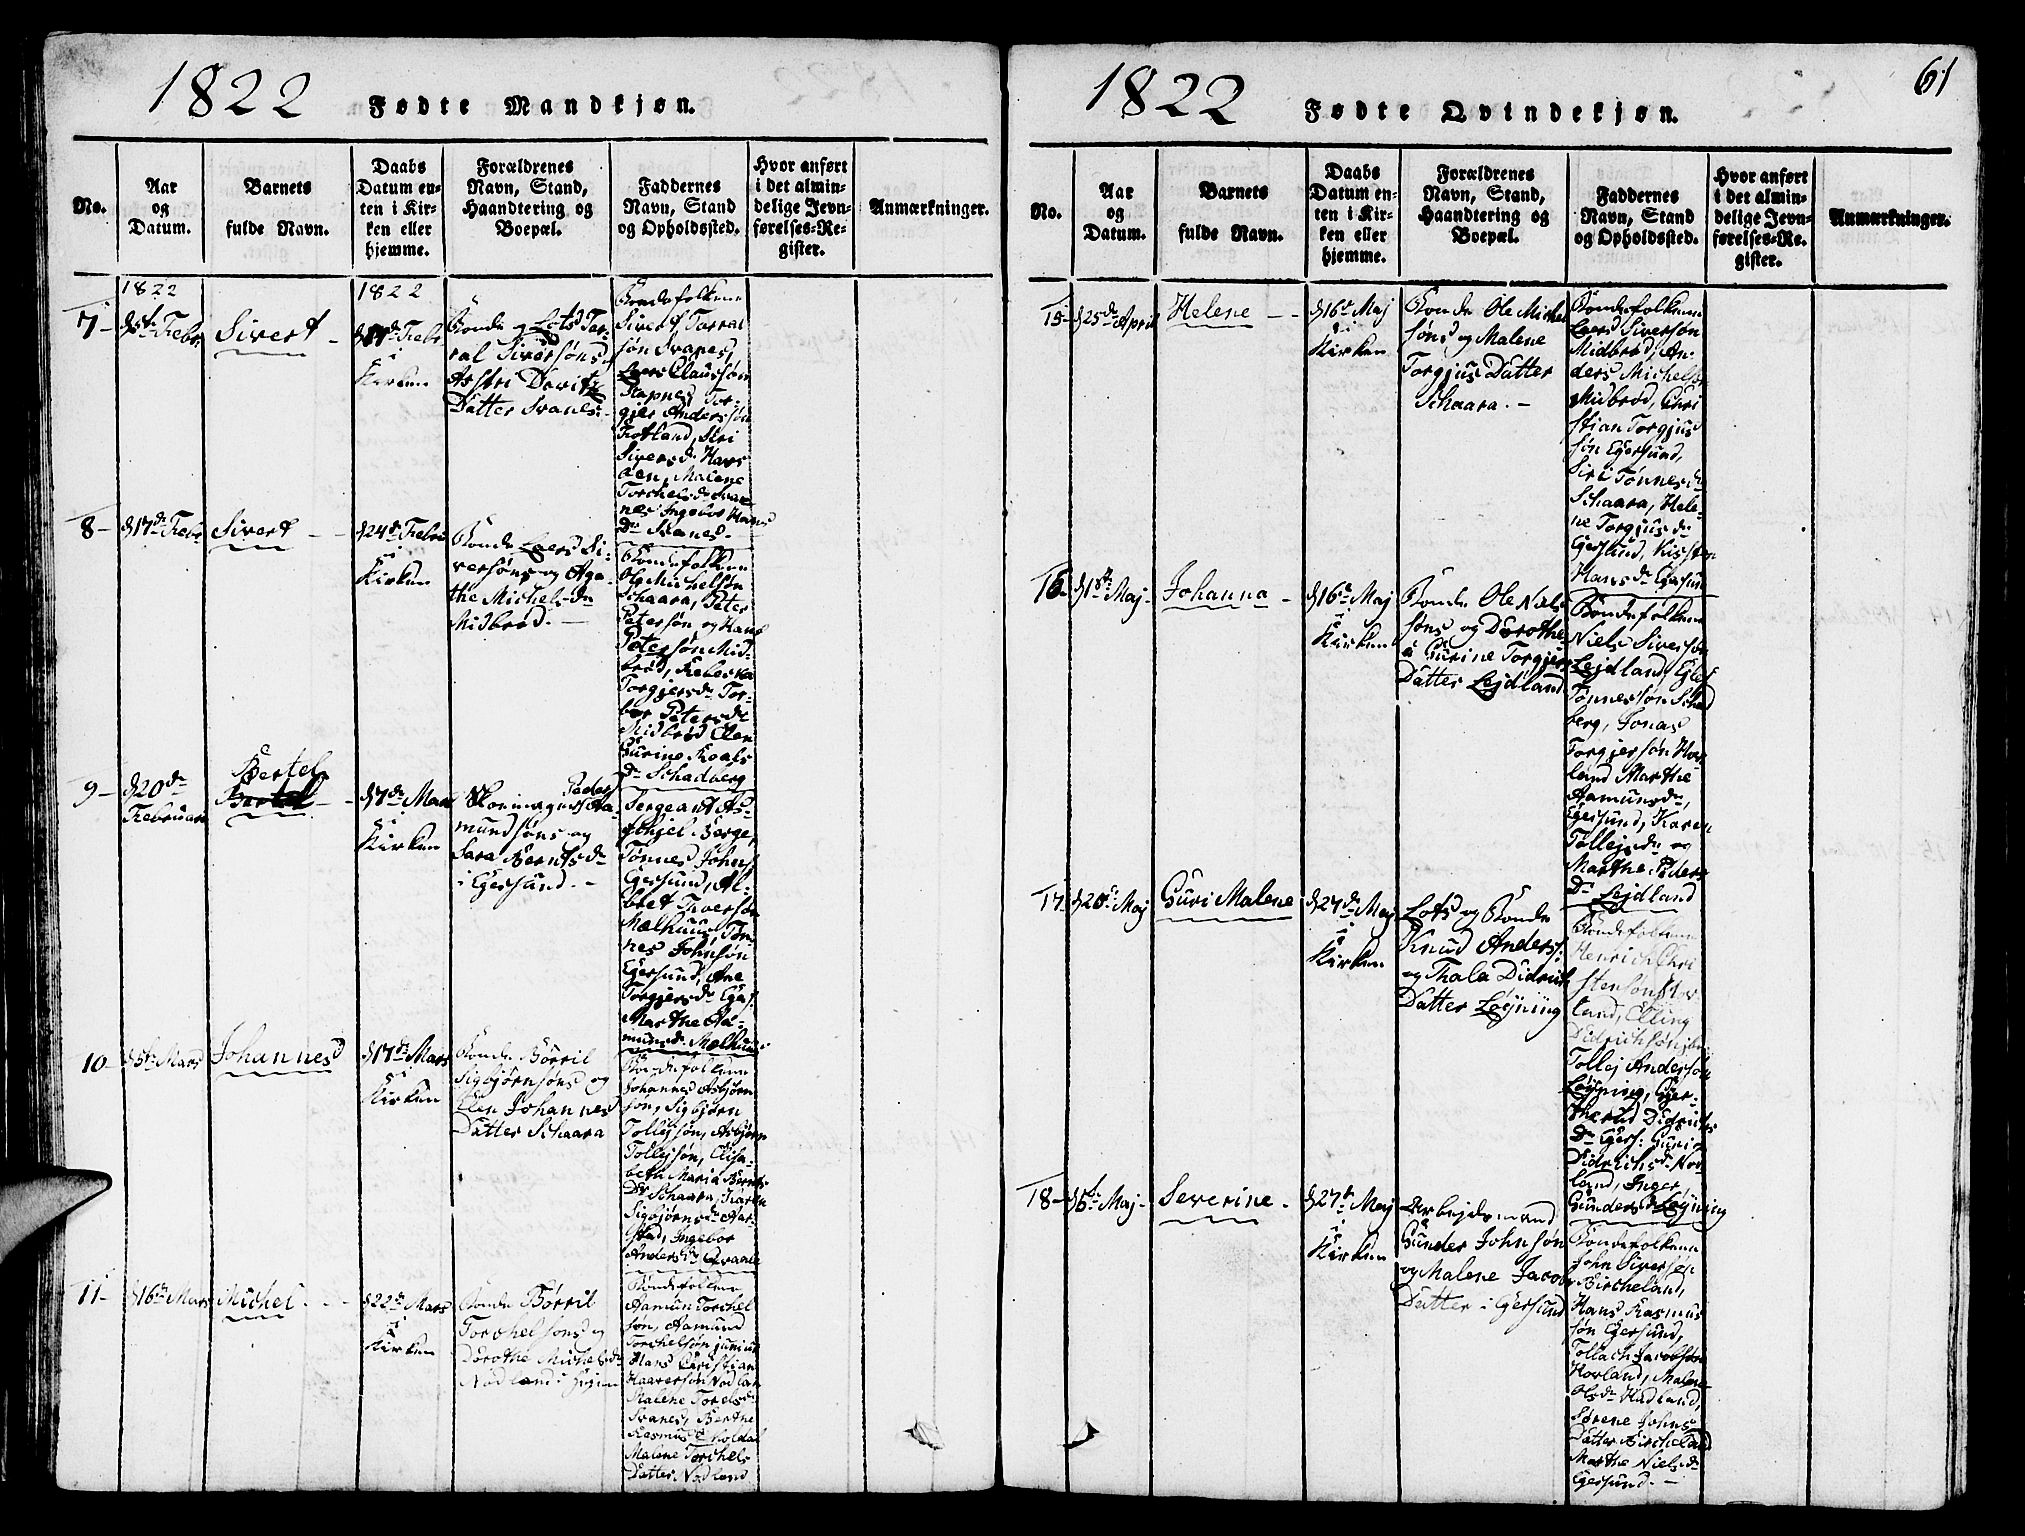 1822 Fødte Mandkjøn.
No.
Aar
og
Datum.
Barnets
fulde Navn.
Daabs
Datum en-
ten i Kir-
ken eller
hjemme.
Forældrenes
Navn, Stand,
Haandtering og
Boepæl.
Faddernes
Navn, Stand
og Opholdssted.
Hvor anført
i det almin-
delige Jevn-
førelses-Re-
gister.
Anmærkninger.
1822
1822
7-
Sivert
i
Kirken
Bonde og Lots Tar-
ral Siversøns
Astri Davits
Datter Svanes.
Bondefolkene
Sivert Tarral
søn Svanes,
Laers Claussøn
Torgier Anderssøn
Malene
Torchelsdr Sva-
nes Ingebor Hans
Dr Svanes.
8-
d 17de Febr
Sivert
d 24de Febr
i
Kirken
Bonde Laers Si-
versøns og Aga-
the Michelsdr
Midbrød.
Bondefolkene
Ole Michelsøn
Schaara, Peter
Petersøn og Hans
Petersøn Mid-
brød, Rebecka
Torgiersdr Tor-
bor Petersdr
Midbrød Elen
Gurine Roals
Dr Schadberg
9-
d 20de
Februar
Bertel
d 7de Mars
i
Kirken
Peder
mundsøns og
Sara Berntsdr
i Egersund.
Sergeant As-
Berge,
Tønnes Johns
Egersund, Al-
bret Iversøn
Mælhuus, Tøn-
nes Johnsøn
Egersund, Ane
Torgiersdr Egers.
Marthe Aa-
mundsdr Mælhuus
10-
d 5te Mars
Johannes
d 17de Mars
i
Kirken
Bonde Børril
Sigbjørnsøns og
Elen Johannes
Datter Schaara
Bondefolkene
Johannes Asbjørn
søn, Sigbjørn
Tollejsøn, Asbjørn
Tollejsøn, Elisa-
beth Maria Bernts
Dr Schaara, Karen
Sigbjørnsdr Aar-
stad, Ingebor
Andersdr Qvaale
11-
d 16de Mars
Michel
d 22de Mars
i
Kirken
Bonde Børril
Torchelsøns og
Dorothe Michelsdr
Nodland i
Bondefolkene
Aamun Torchel
søn, Aamund
Torchelsøn junior
Hans Christian
Haaversøn Nodland
Malene Torels
Svanes, Berthe
Rasmusdr
Malene Torchels
Datter Nodland
1822 Fødte Qvindekjøn.
61
No.
Aar
og
Datum.
Barnets
fulde Navn.
Daabs
Datum en-
ten i Kir-
ken eller
hjemme.
Forældrenes
Navn, Stand,
Haandtering og
Boepæl.
Faddernes
Navn, Stand
og Opholdssted.
Hvor anført
i det almin-
delige Jevn-
førelses-Re-
gister.
Anmærkninger.
15-
d 25de April
Helene
d 16de Maj
i
Kirken
Bonde Ole Michel
søns og Malene
Torgjus Datter
Schaara.
Bondefolkene
Laers Siversøn
Midbrød, An-
ders Michelsøn
Midbrød, Chri
stian Torgjus
søn Egersund,
Siri Tønnesdr
Schaara, Hele-
ne Torgjusdr
Egersund, Kirsten
Hansdr Egersund
16-
d 1ste Maj
Johanna
d 16de Maj
i
Kirken
Bonde Ole Niels
søns og Dorothe-
a Gurine Torgjers
Datter Lejdland
Bondefolkene
Niels Siversøn
Lejdland, Ejlef
Tønnessøn Schad
berg, Jonas
Torgjersøn Hov-
land Marthe
Aamunsdr,
Egersund, Karen
Tollejsdr og
Marthe Peders
Dr Lejdland
17-
d 20de Maj
Guri Malene
d 27de Maj
i
Kirken
Lots og Bonde
Knud Anders:
og Thala Didrich
Datter Løyning
Bondefolkene
Henrich Chri
stensøn
land, Elling
Didrichsøn
Tollej Andersøn
Løyning, Gjer-
therud Didrichs
Dr Egers: Guri
Didrichsdr Nod-
land, Inger
Gundersdr Løyning
18-
d 5te Maj
Severine
d 27de Maj
i
Kirken
Arbejdsmand
Gunder Johnsøn
og Malene Jacobs
Datter i Egersund
Bondefolkene
John Siversøn
Bircheland,
Hans Rasmus
søn Egersund,
Tollach Jacobsøn
Hovland, Malene
Olsdr Hadland,
Sørene Johns
Datter Bircheland
Marthe Nielsdr
Egersund.